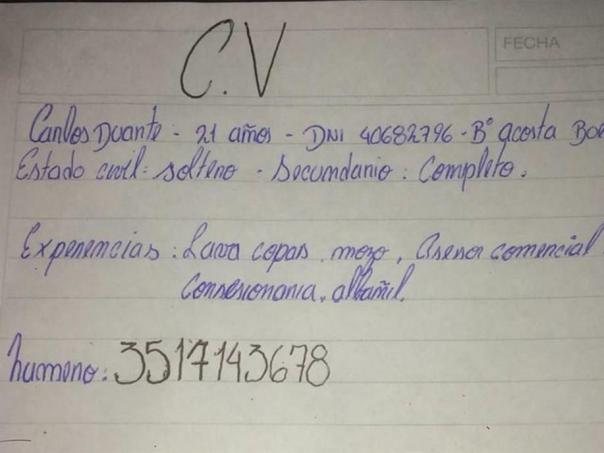 C.V
FECHA
Carlos Duarte - 21 años - DNI 40682796 - Bº acosta
Estado civil: soltero - Secundario: Completo.
Experiencias: Lava copas, mozo, Asesor comercial
Conseсionaria, albañil.
numero: 3517143678